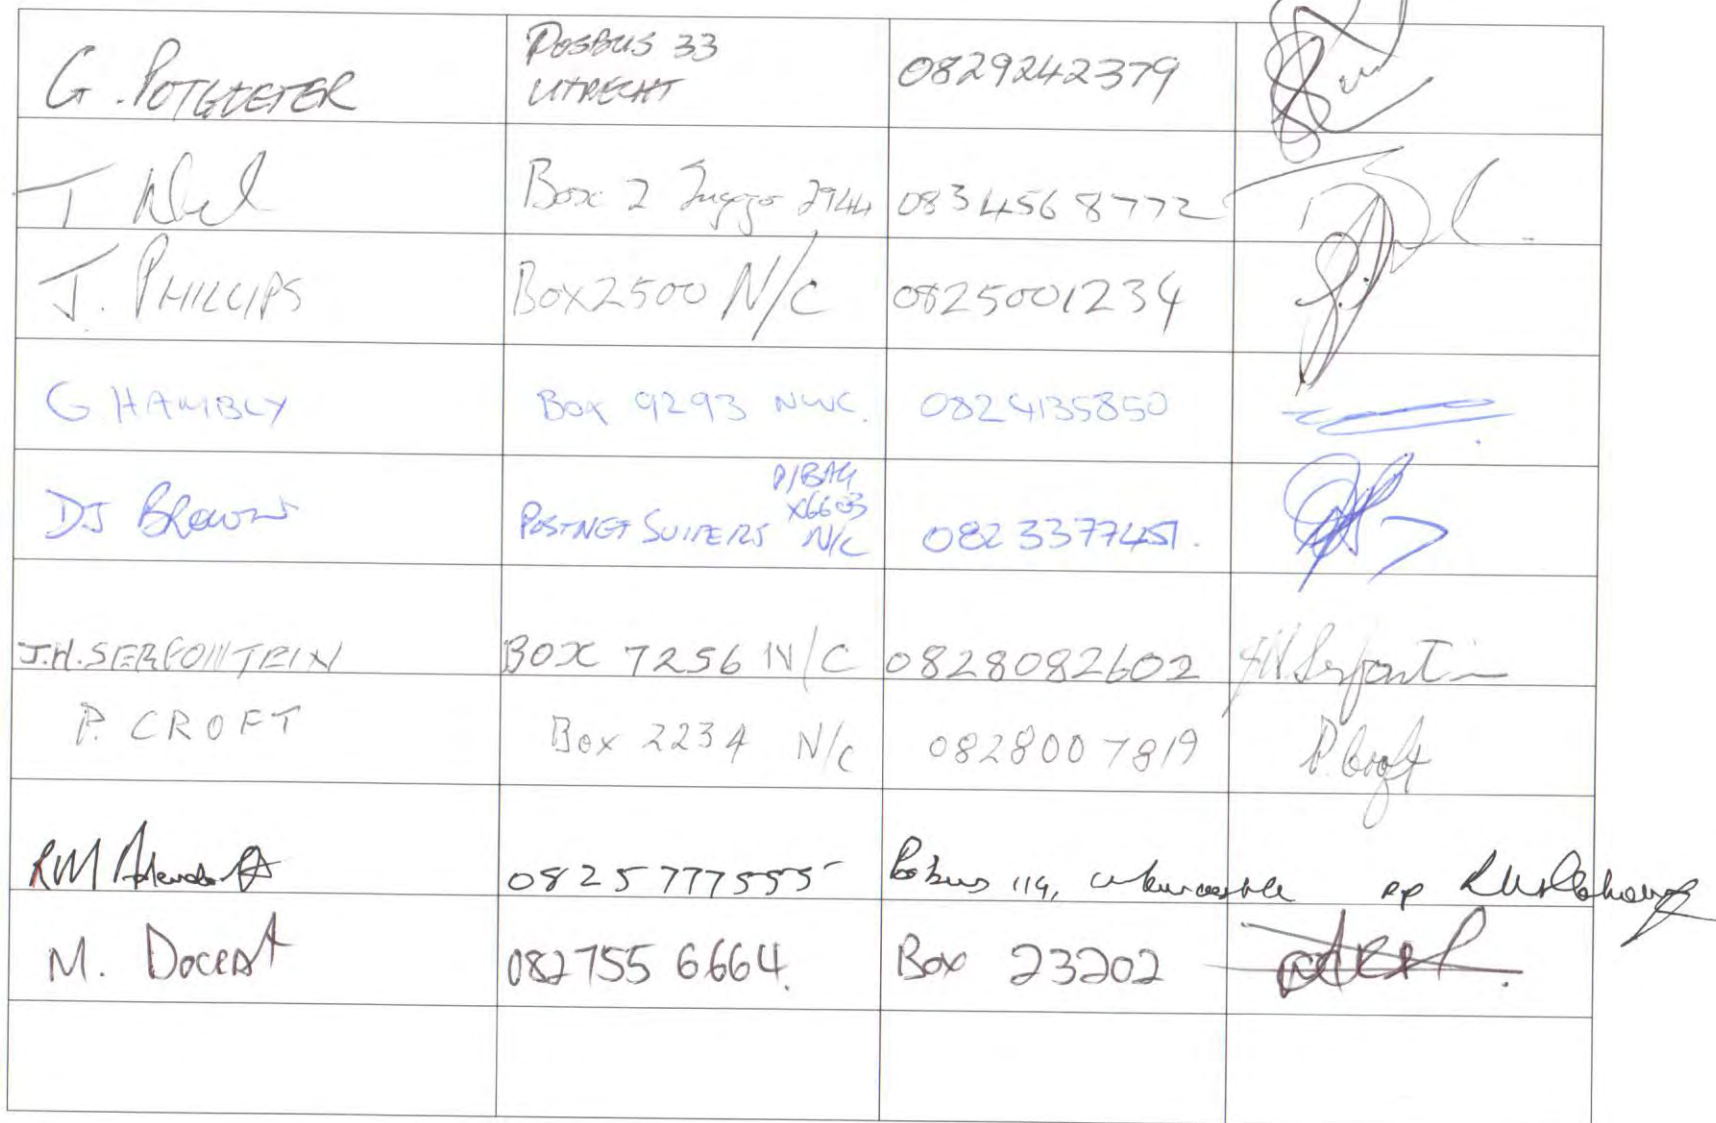 G. POTGIETER
POSBUS 33
UTRECHT
0829242379
T Nel
Box 2 2944
0834568772
J. PHILLIPS
Box 2500 N/C
0825001234
G HAMBLY
Box 9293 NWC.
0824135850
DJ BROWN
P/BAG
X6603
POSTNET N/C
0823377451.
J.H. SERFONTEIN
BOX 7256 N/C
0828082602
JH Serfontein
P. CROFT
Box 2234 N/C
0828007819
P. Croft
RM
0825777555
Posbus 119, pp
M.
082755 6664.
Box 23202